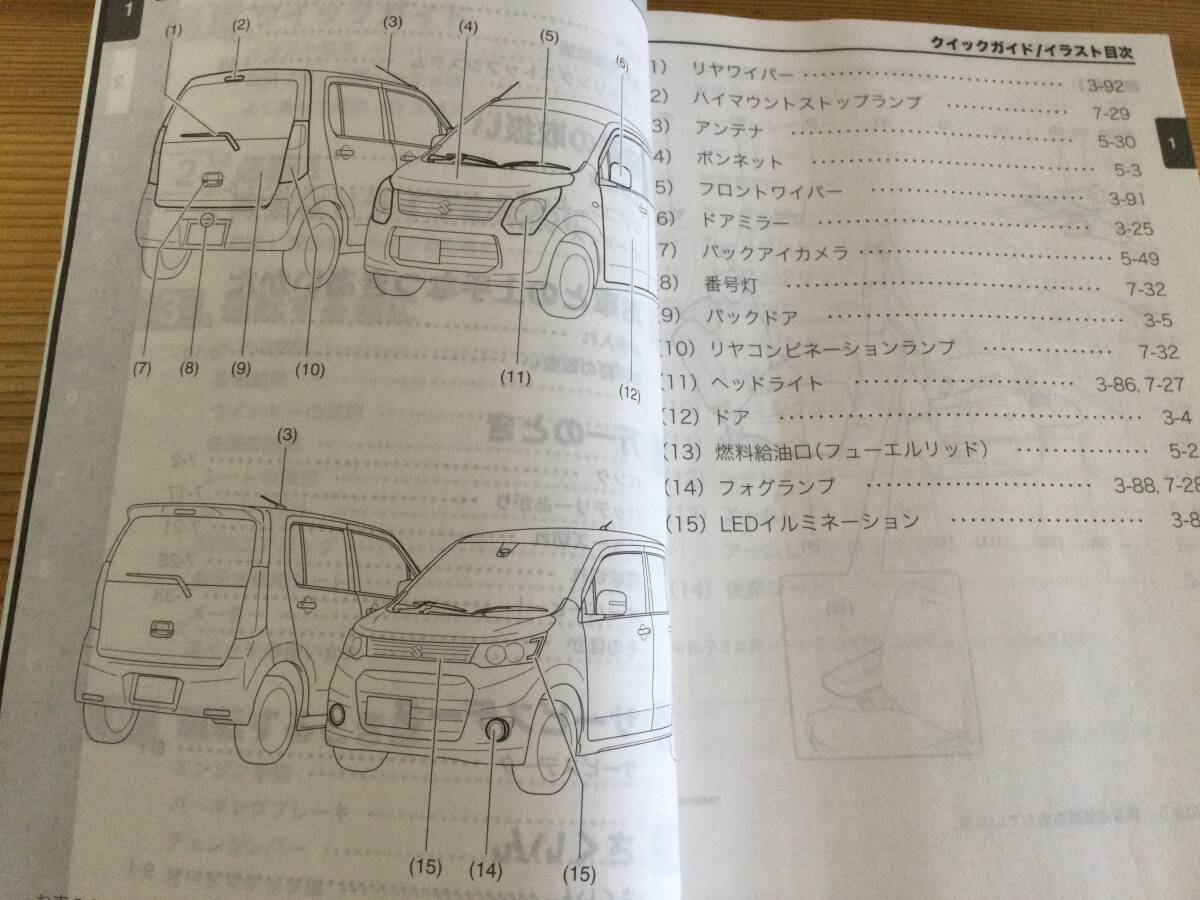 1
(1)
(2)
(3)
(4)
(5)
(6)
(7)
(8)
(9)
(10)
(11)
(12)
(3)
(15)
(14)
(15)
クイックガイド/イラスト目次
1
1) リヤワイパー 3-92
2) ハイマウントストップランプ 7-29
3) アンテナ 5-30
4) ボンネット 5-3
5) フロントワイパー 3-91
6) ドアミラー 3-25
(7) バックアイカメラ 5-49
(8) 番号灯 7-32
(9) バックドア 3-5
(10) リヤコンビネーションランプ 7-32
(11) ヘッドライト 3-86, 7-27
(12) ドア 3-4
(13) 燃料給油口(フューエルリッド) 5-2
(14) フォグランプ 3-88, 7-28
(15) LEDイルミネーション 3-8